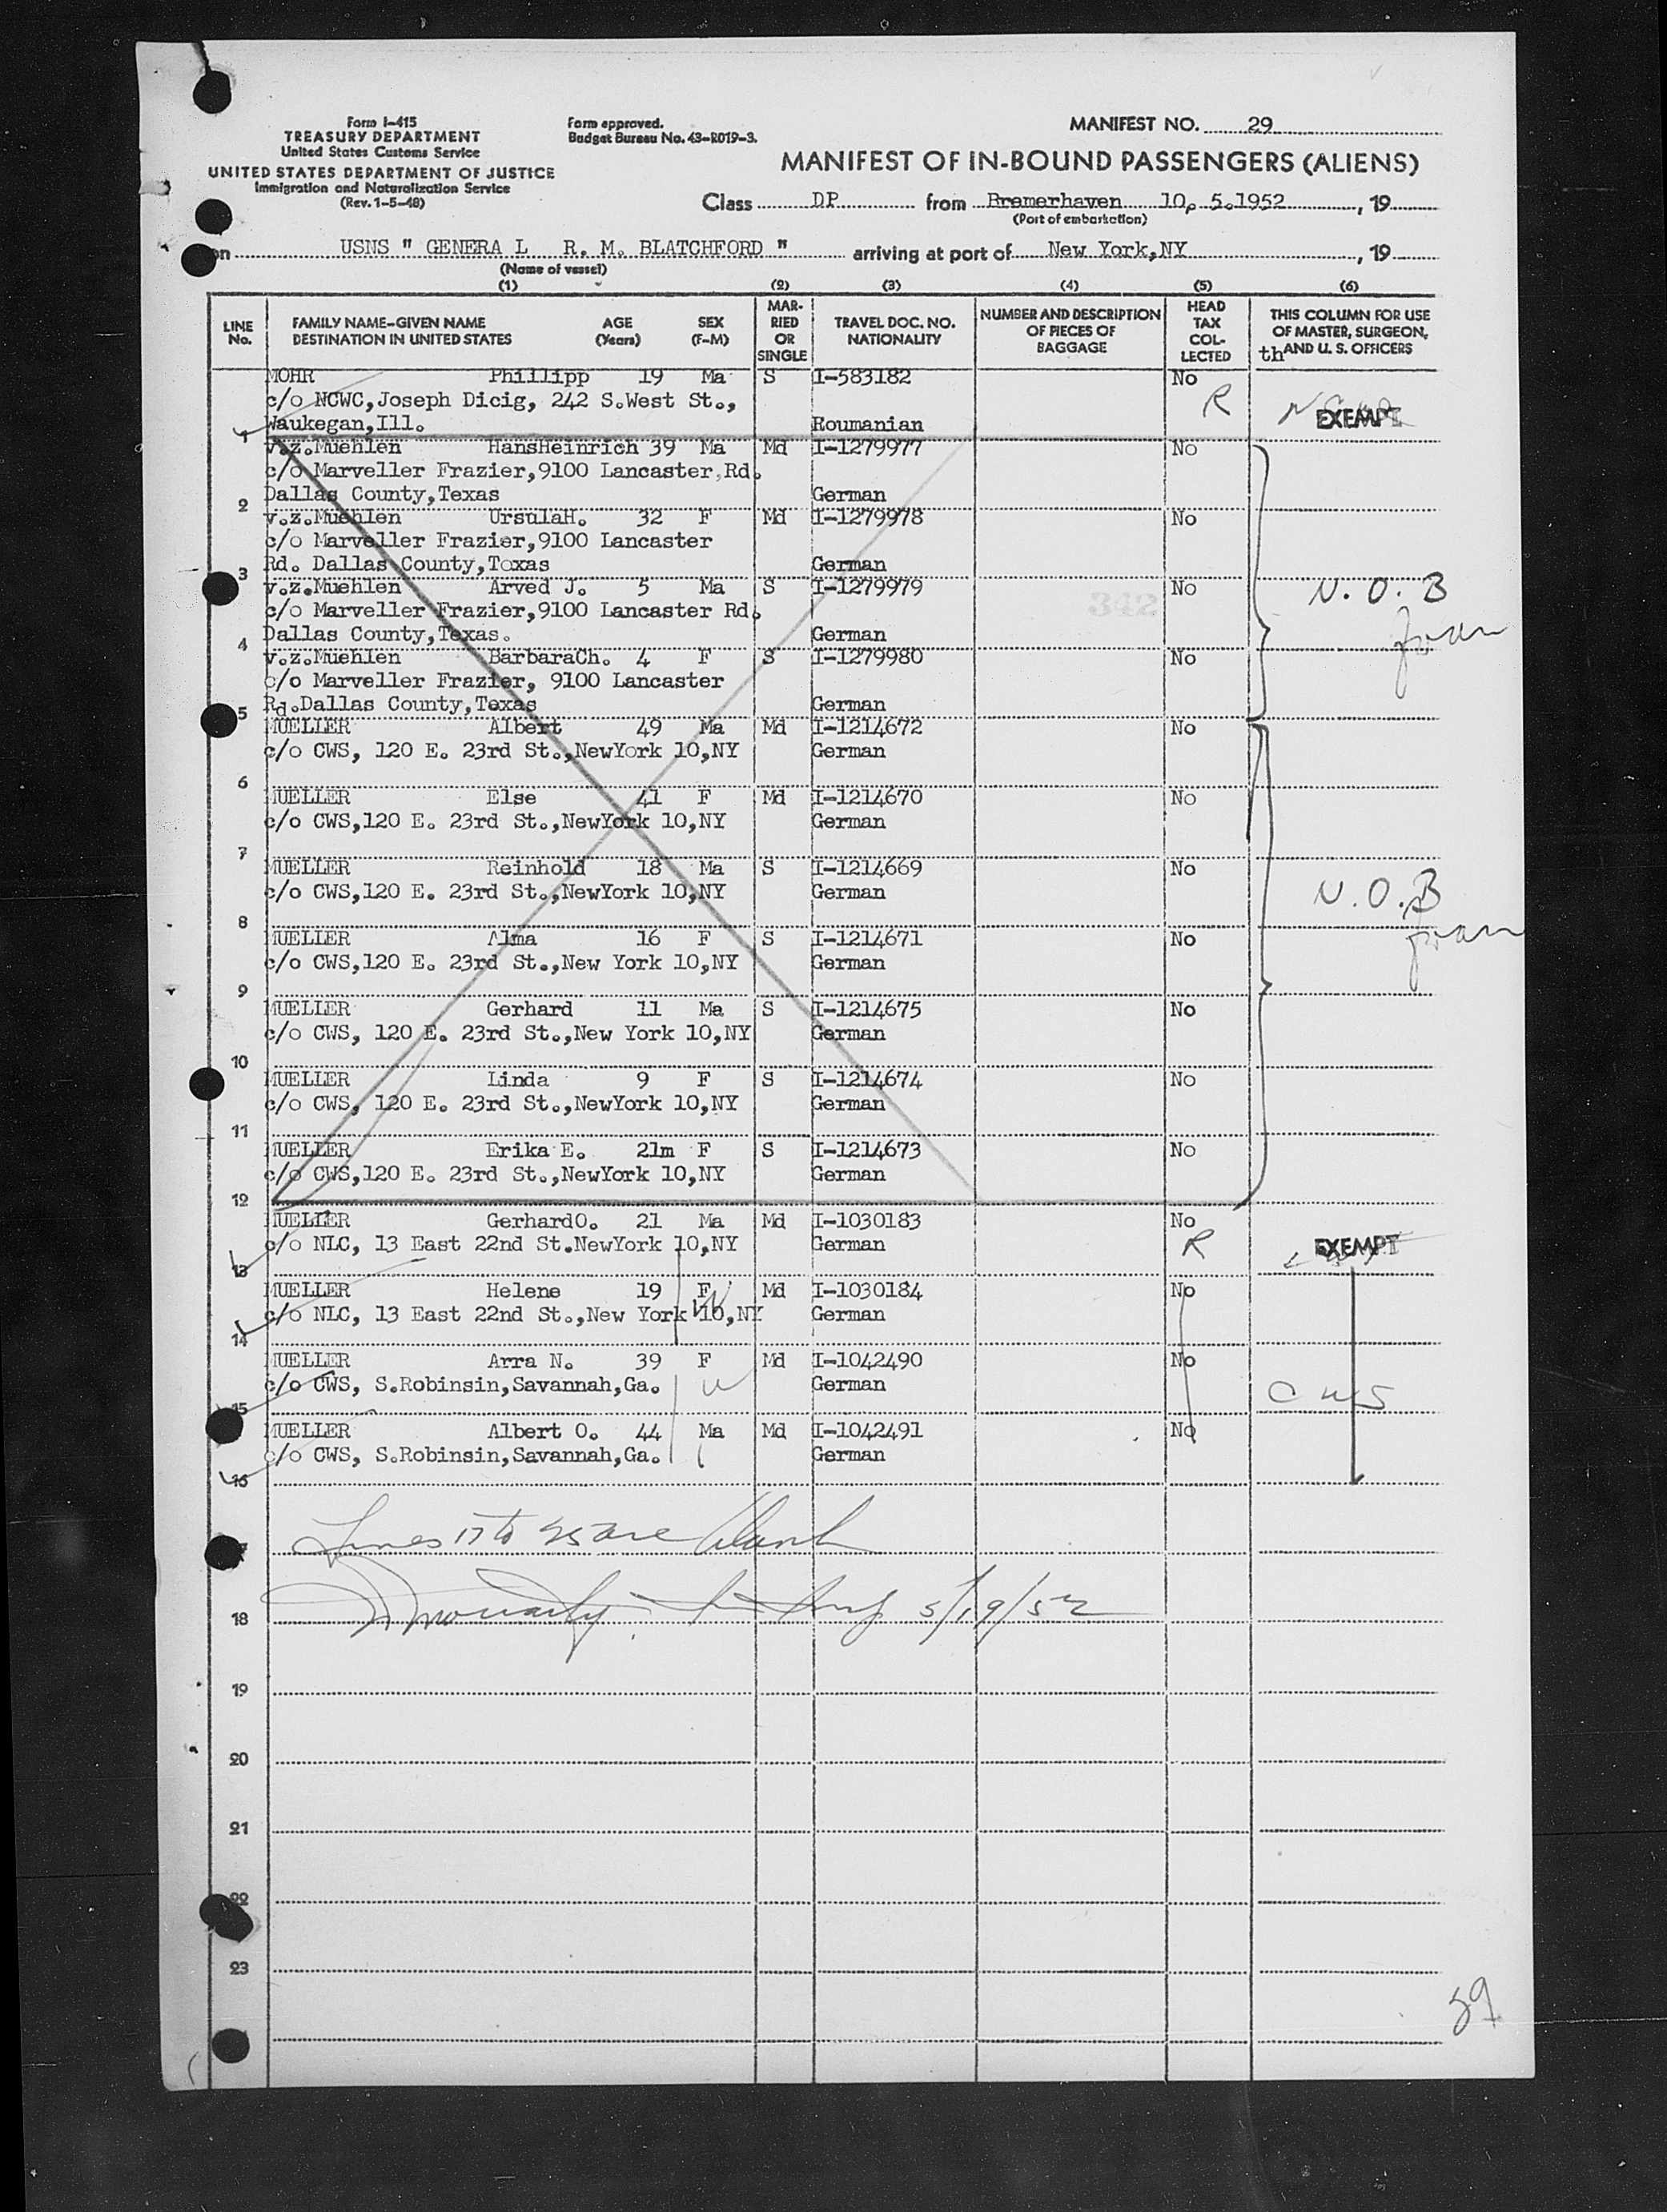 Form I-415
TREASURY DEPARTMENT
United States Customs Service
UNITED STATES DEPARTMENT OF JUSTICE
Immigration and Naturalization Service
(Rev. 1-5-48)
Form approved.
Budget Bureau No. 43-R019-3.
MANIFEST NO. 29
MANIFEST OF IN-BOUND PASSENGERS (ALIENS)
Class DP from Bremerhaven 10, 5.1952, 19
(Port of embarkation)
on USNS " GENERA L R. M. BLATCHFORD " arriving at port of New York,NY, 19
(Name of vessel)
(1) (2) (3) (4) (5) (6)
LINE No.
FAMILY NAME-GIVEN NAME DESTINATION IN UNITED STATES
AGE (Years)
SEX (F-M)
MAR-RIED OR SINGLE
TRAVEL DOC. NO. NATIONALITY
NUMBER AND DESCRIPTION OF PIECES OF BAGGAGE
HEAD TAX COL-LECTED
THIS COLUMN FOR USE OF MASTER, SURGEON, AND U. S. OFFICERS
th
MOHR Phillipp 19 Ma S I-583182 No
c/o NCWC,Joseph Dicig, 242 S.West St., R EXEMPT
1 Waukegan,Ill. Roumanian
v.z.Muehlen HansHeinrich 39 Ma Md I-1279977 No
c/o Marveller Frazier,9100 Lancaster,Rd.
2 Dallas County,Texas German
v.z.Muehlen UrsulaH. 32 F Md I-1279978 No
c/o Marveller Frazier,9100 Lancaster
3 Rd. Dallas County,Texas German
v.z.Muehlen Arved J. 5 Ma S I-1279979 No N.O.B
c/o Marveller Frazier,9100 Lancaster Rd. 342
4 Dallas County,Texas. German
v.z.Muehlen BarbaraCh. 4 F S I-1279980 No
c/o Marveller Frazier, 9100 Lancaster
5 Rd.Dallas County,Texas German
MUELLER Albert 49 Ma Md I-1214672 No
c/o CWS, 120 E. 23rd St.,NewYork 10,NY German
6
MUELLER Else 41 F Md I-1214670 No
c/o CWS,120 E. 23rd St.,NewYork 10,NY German
7
MUELLER Reinhold 18 Ma S I-1214669 No
c/o CWS,120 E. 23rd St.,NewYork 10,NY German N.O.B
8
MUELLER Alma 16 F S I-1214671 No
c/o CWS,120 E. 23rd St.,New York 10,NY German
9
MUELLER Gerhard 11 Ma S I-1214675 No
c/o CWS, 120 E. 23rd St.,New York 10,NY German
10
MUELLER Linda 9 F S I-1214674 No
c/o CWS, 120 E. 23rd St.,NewYork 10,NY German
11
MUELLER Erika E. 21m F S I-1214673 No
c/o CWS,120 E. 23rd St.,NewYork 10,NY German
12
MUELLER GerhardO. 21 Ma Md I-1030183 No
c/o NLC, 13 East 22nd St.NewYork 10,NY German R EXEMPT
13
MUELLER Helene 19 F Md I-1030184 No
c/o NLC, 13 East 22nd St.,New York 10,NY German
14
MUELLER Arra N. 39 F Md I-1042490 No
c/o CWS, S.Robinsin,Savannah,Ga. German CWS
15
MUELLER Albert O. 44 Ma Md I-1042491 No
c/o CWS, S.Robinsin,Savannah,Ga. German
16
Lines 17 to 25 are blank
5/19/52
18
19
20
21
22
23
59